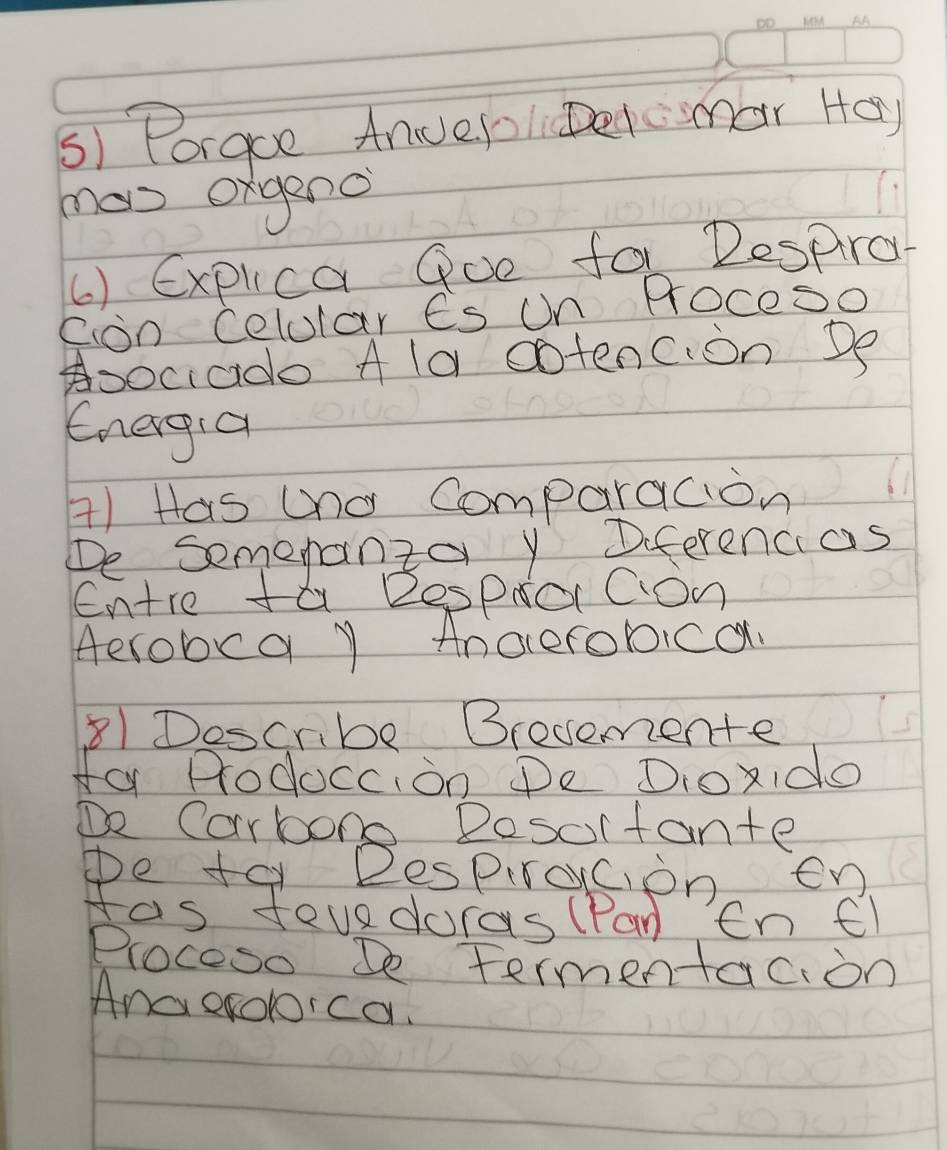 DD MM AA
5) Porqoe Anivel Del mar Hay
mas oxigeno
6) Explica Qoe la Respira-
ción Celular Es Un Proceso
Asociado A la obtención De
Energia
7) Has Una Comparación
De Semejanza y Diferencias
Entre la Respiración
Aerobica y Anaerobica.
8) Describe Brevemente
la Prodocción De Dioxido
De Carbono Resoltante
De la Respiración en
las levaduras (Pan) En El
Proceso De Fermentación
Anaerobica.